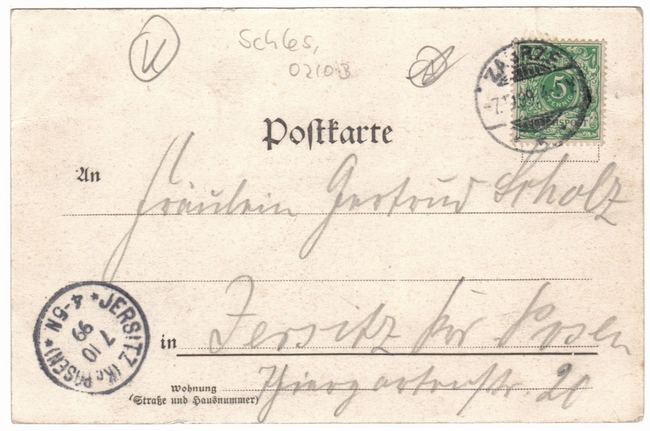 Schles,
02103
ZABRZE
5
Postkarte
An
Fräulein Gertrud Scholz
JERSITZ (Kr. POSEN)
7 10 99
4-5N
in Jersitz Kr Posen
Wohnung
(Straße und Hausnummer)
Thiergartenstr. 20